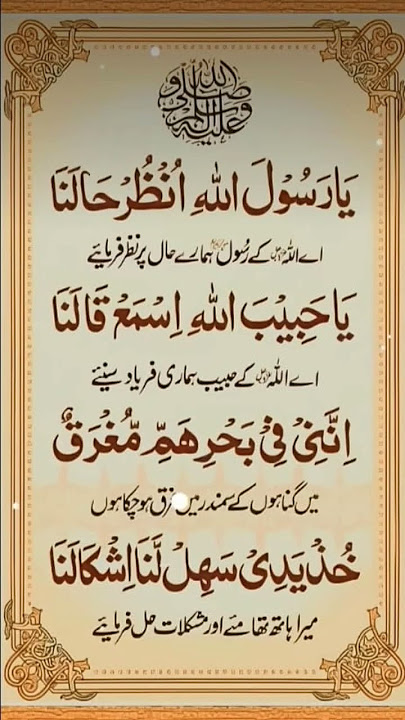 صلى الله عليه وسلم
يَا رَسُوْلَ اللهِ اُنْظُرْ حَالَنَا
اے اللہ عزوجل کے رسول ہمارے حال پر نظر فرمایئے
يَا حَبِيْبَ اللهِ اِسْمَعْ قَالَنَا
اے اللہ عزوجل کے حبیب ہماری فریاد سنیئے
اِنَّنِيْ فِيْ بَحْرِ هَمٍّ مُّغْرَقٌ
میں گناہوں کے سمندر میں غرق ہو چکا ہوں
خُذْ يَدِيْ سَهِّلْ لَّنَا اِشْكَالَنَا
میرا ہاتھ تھامئے اور مشکلات حل فرمایئے